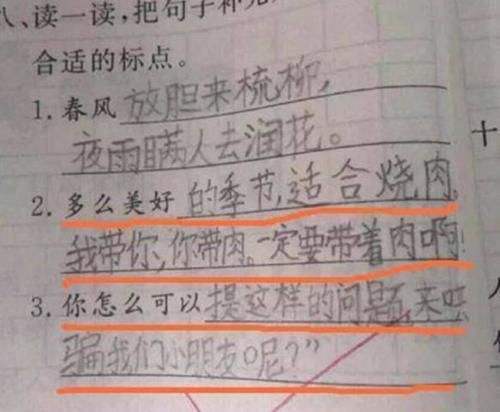 八、读一读,把句子补充
合适的标点。
1.春风放胆来梳柳,
夜雨瞒人去润花。
2.多么美好的季节,适合烧肉。
我带你,你带肉。一定要带着肉啊!
3.你怎么可以提这样的问题来
骗我们小朋友呢?”
十